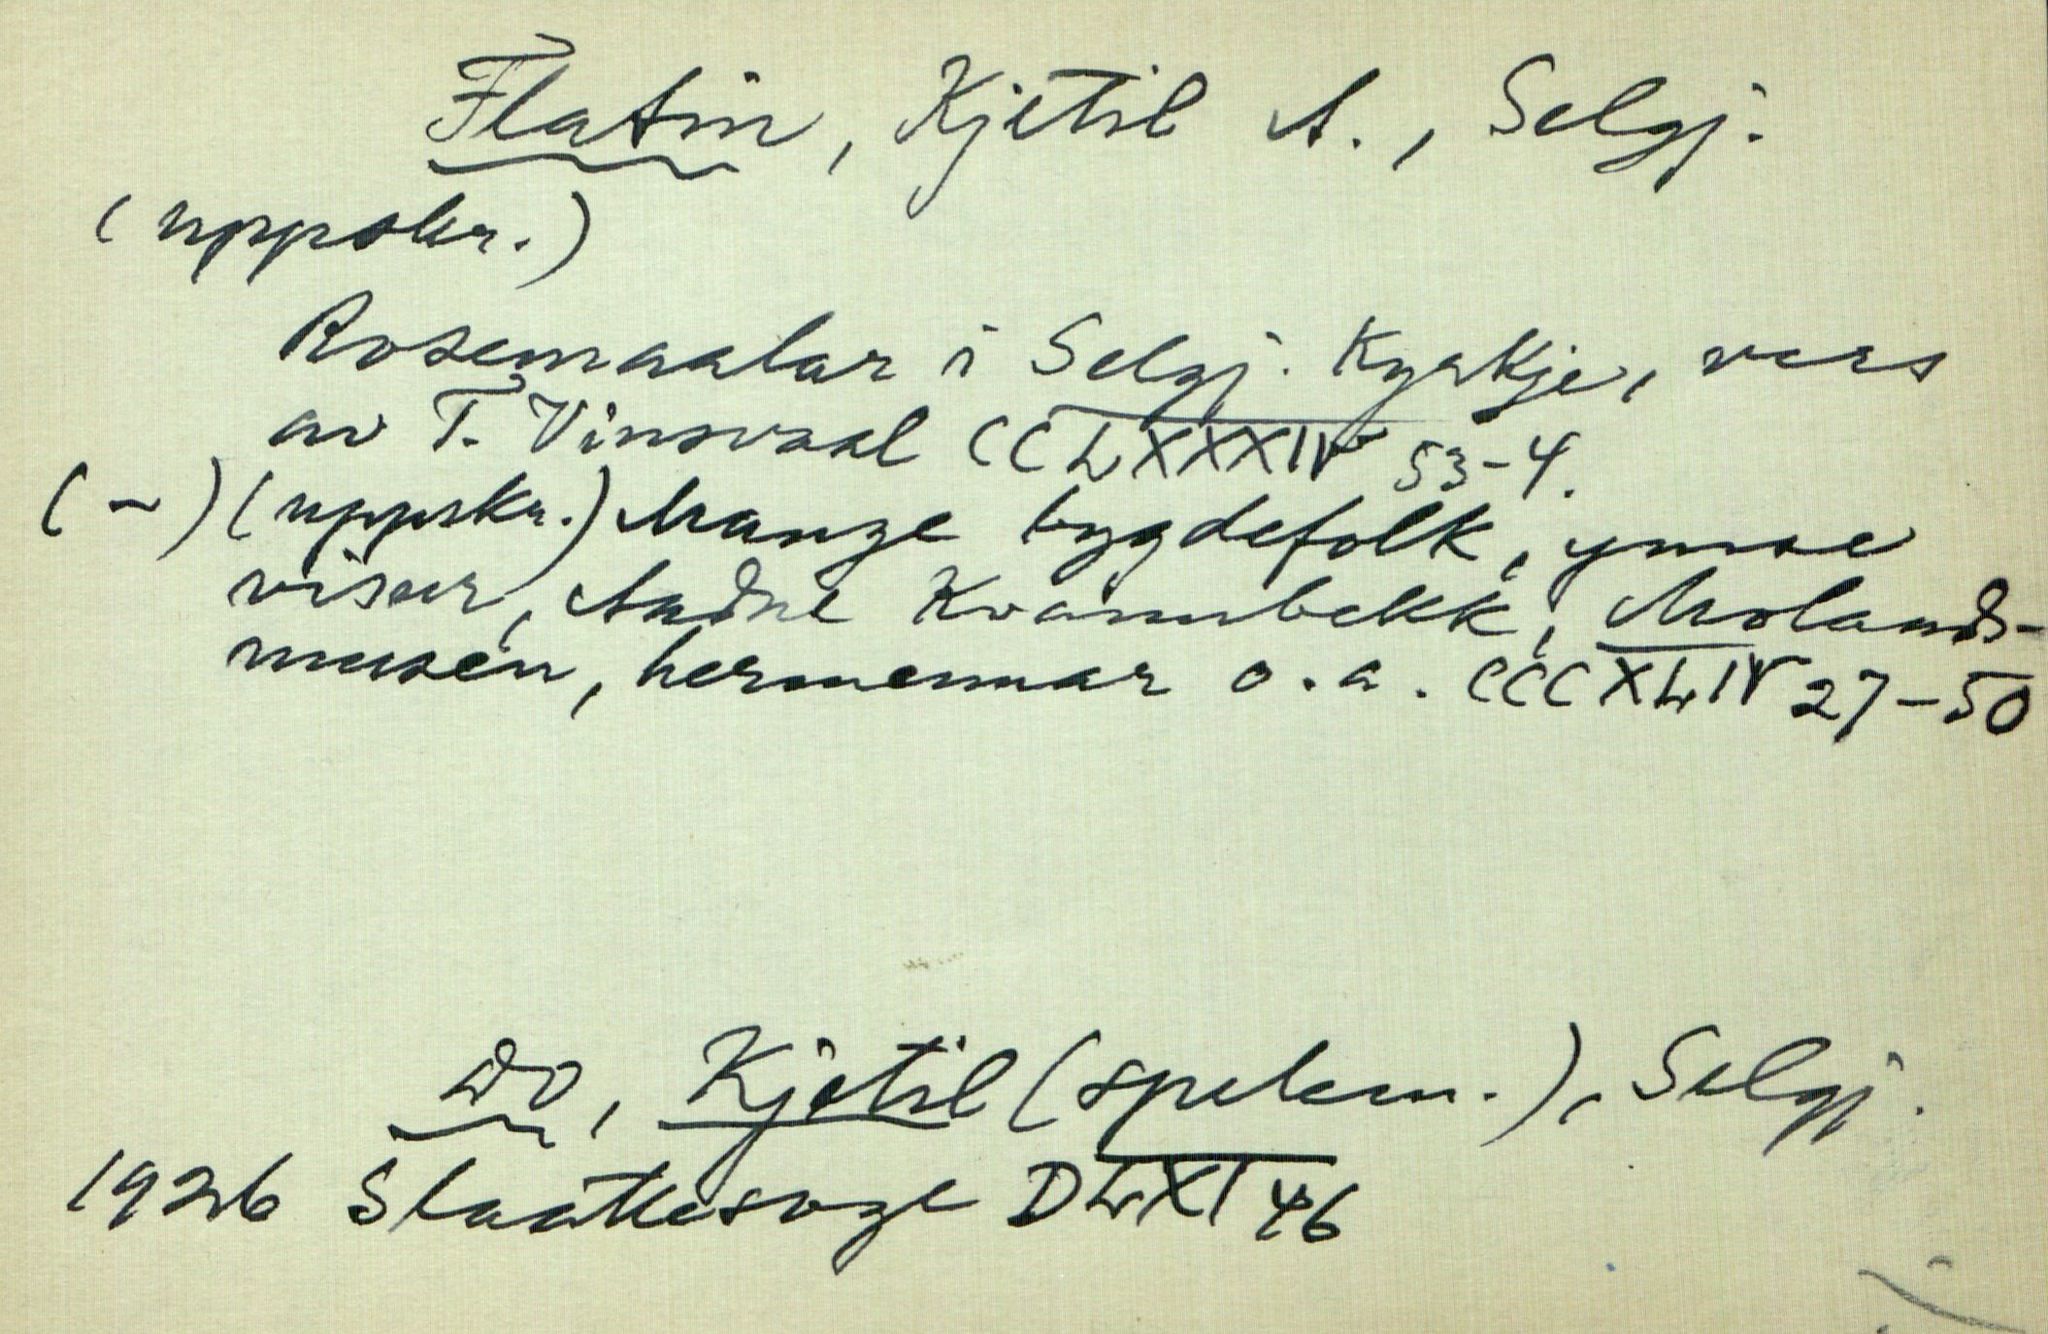 Flatin, Kjetil A., Selgj.
(uppskr.)
Rosemaalar i Selgj. Kyrkje, vers
av T. Vinsvaal CCLXXXIV 53-4.
(~) (uppskr.) Mange bygdefolk, ymse
viser, Andre Kvannbekk, Molands-
musen, hermennar o.a. CCCXLIV 27-50
Do, Kjetil (spelem.), Selgj.
1926 Slaattesoge DLXI 46